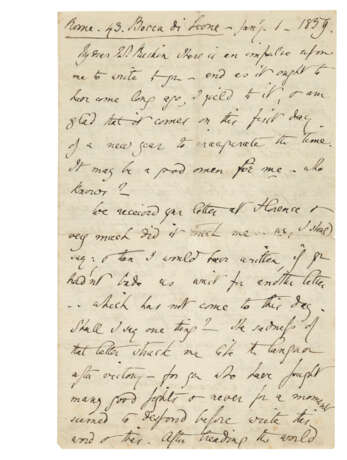 Rome. 43. Bocca di Leone - Jan'y. 1 - 1859.
My dear Mr. Ruskin There is an impulse upon
me to write to you - and as it ought to
have come long ago, I yield to it, & am
glad that it comes on this first day
of a new year to inaugurate the time.
It may be a good omen for me - who
knows? -
We received your letter at Florence &
very much did it touch me .. us, I should
say - & then I would have written if you
hadn't bade us wait for another letter
.. which has not come to this day.
Shall I say one thing? - The sadness of
that letter struck me like the languor
after victory - for you who have fought
many good fights & never for a moment
seemed to despond before write this
word & this. After treading the world